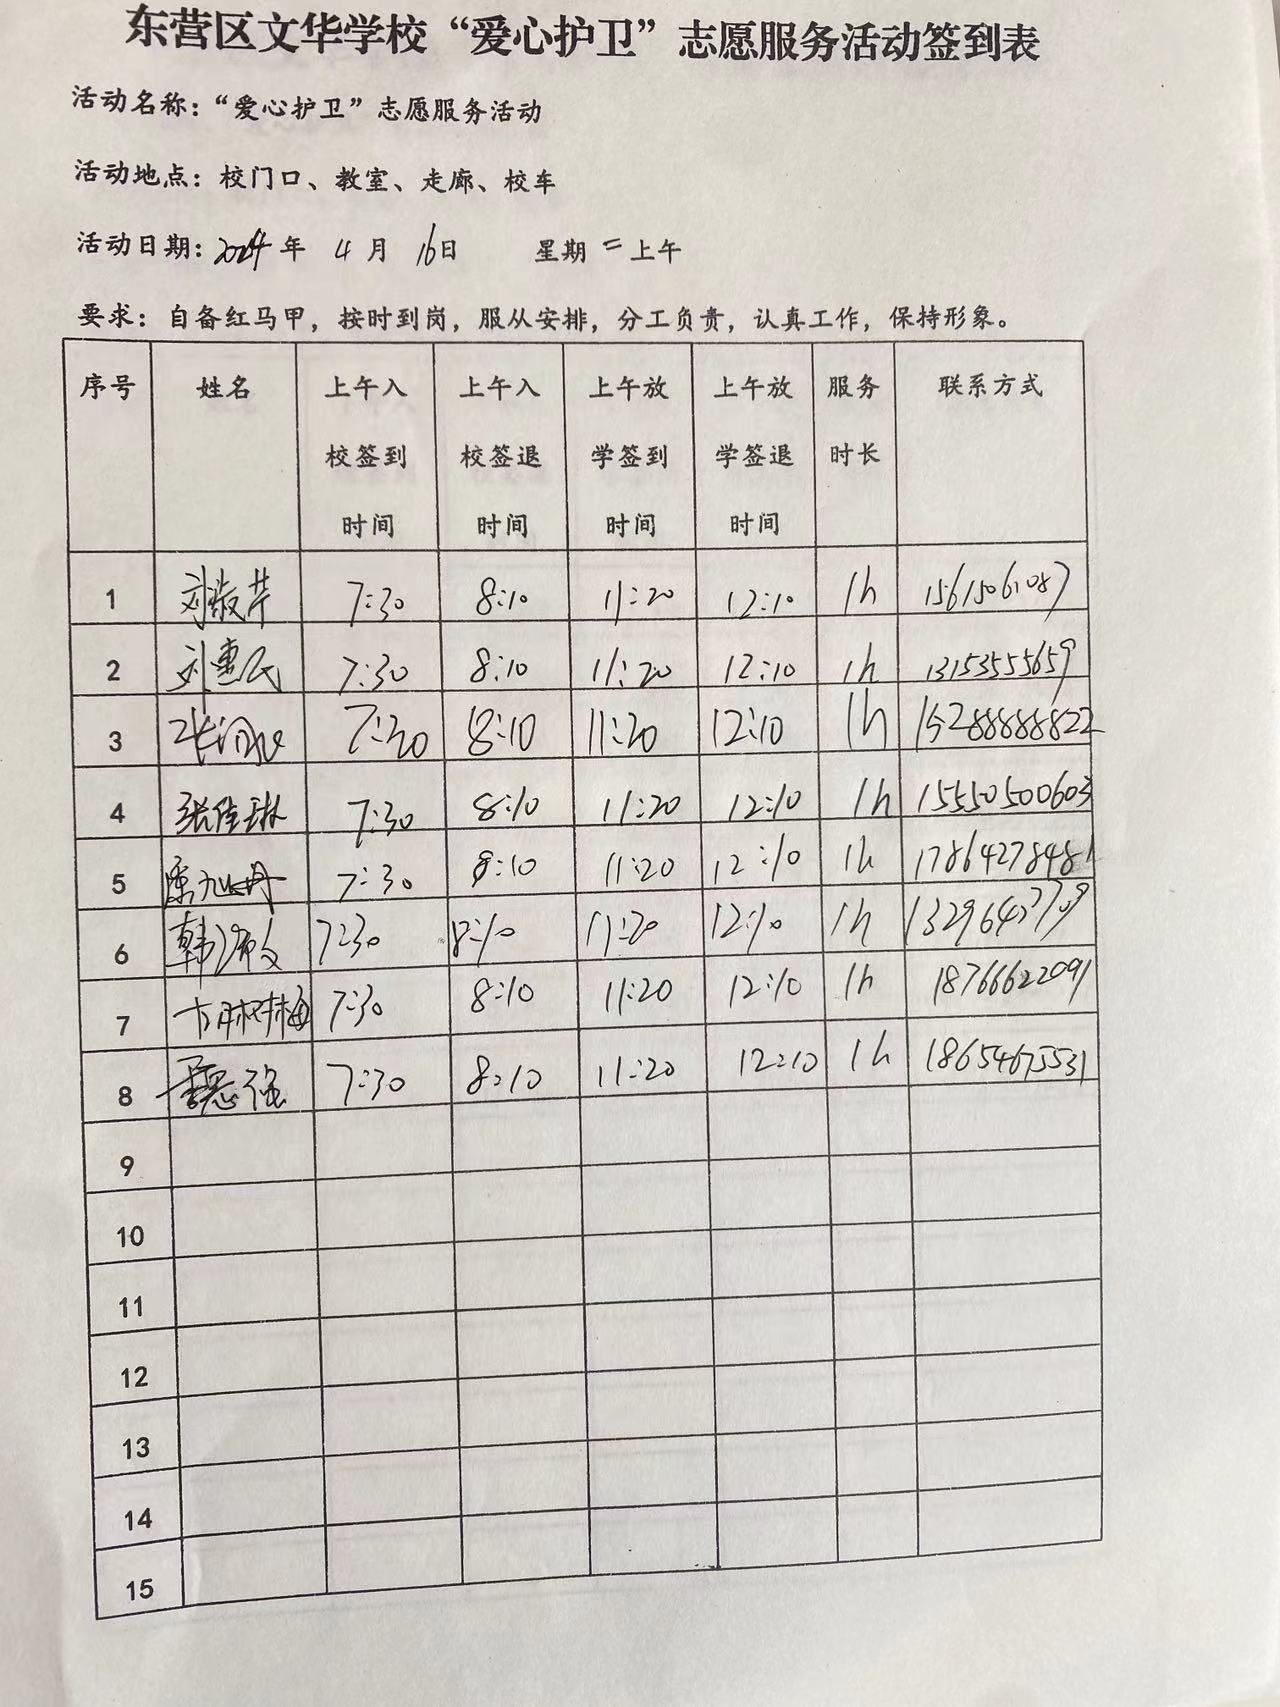 东营区文华学校“爱心护卫”志愿服务活动签到表
活动名称：“爱心护卫”志愿服务活动
活动地点：校门口、教室、走廊、校车
活动日期：2024年 4月 16日 星期二上午
要求：自备红马甲，按时到岗，服从安排，分工负责，认真工作，保持形象。
序号 姓名 上午入校签到时间 上午入校签退时间 上午放学签到时间 上午放学签退时间 服务时长 联系方式
1 刘淑芹 7:30 8:10 11:20 12:10 1h 15615061087
2 刘惠民 7:30 8:10 11:20 12:10 1h 13153555659
3 7:30 8:10 11:20 12:10 1h 15288888822
4 张佳琳 7:30 8:10 11:20 12:10 1h 15550500603
5 7:30 8:10 11:20 12:10 1h 17864278481
6 7:30 8:10 11:20 12:10 1h
7 7:30 8:10 11:20 12:10 1h 18766622091
8 7:30 8:10 11:20 12:10 1h 18654675531
9
10
11
12
13
14
15